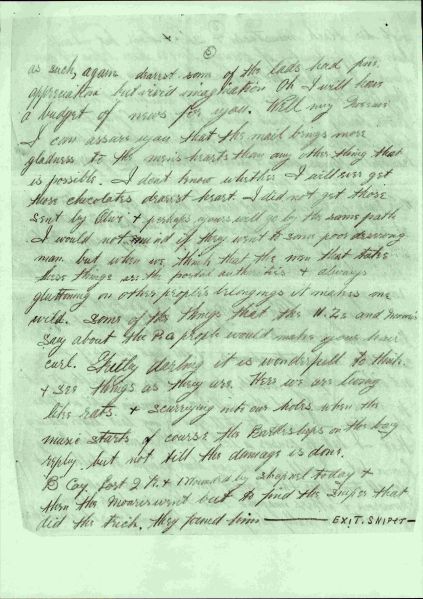 5
as such, again dearest some of the lads had pure
appreciation but vivid imagination Oh I will have
a budget of news for you. Well my Sweetie
I can assure you that the mail brings more
gladness to the men's hearts than any other thing that
is possible. I dont know whether I will ever get
those chocolates dearest heart. I did not get those
sent by & perhaps yours will go by the same path
I would not mind if they went to some poor deserving
man but when we think that the men that take
these things are the postal authorities & always
gluttening on other people's belongings it makes one
wild. Some of the things that the N.Zs and
say about the people would make your hair
curl. darling it is wonderfull to think
& see things as they are. Here we are living
like rats & scurrying into our holes when the
music starts of course the Battleships on the bay
reply but not till the damage is done.
B Coy. lost 2 K. & 1 Wounded by today &
then the Maories went out to find the sniper that
did the trick. they found him — EXIT. SNIPER —